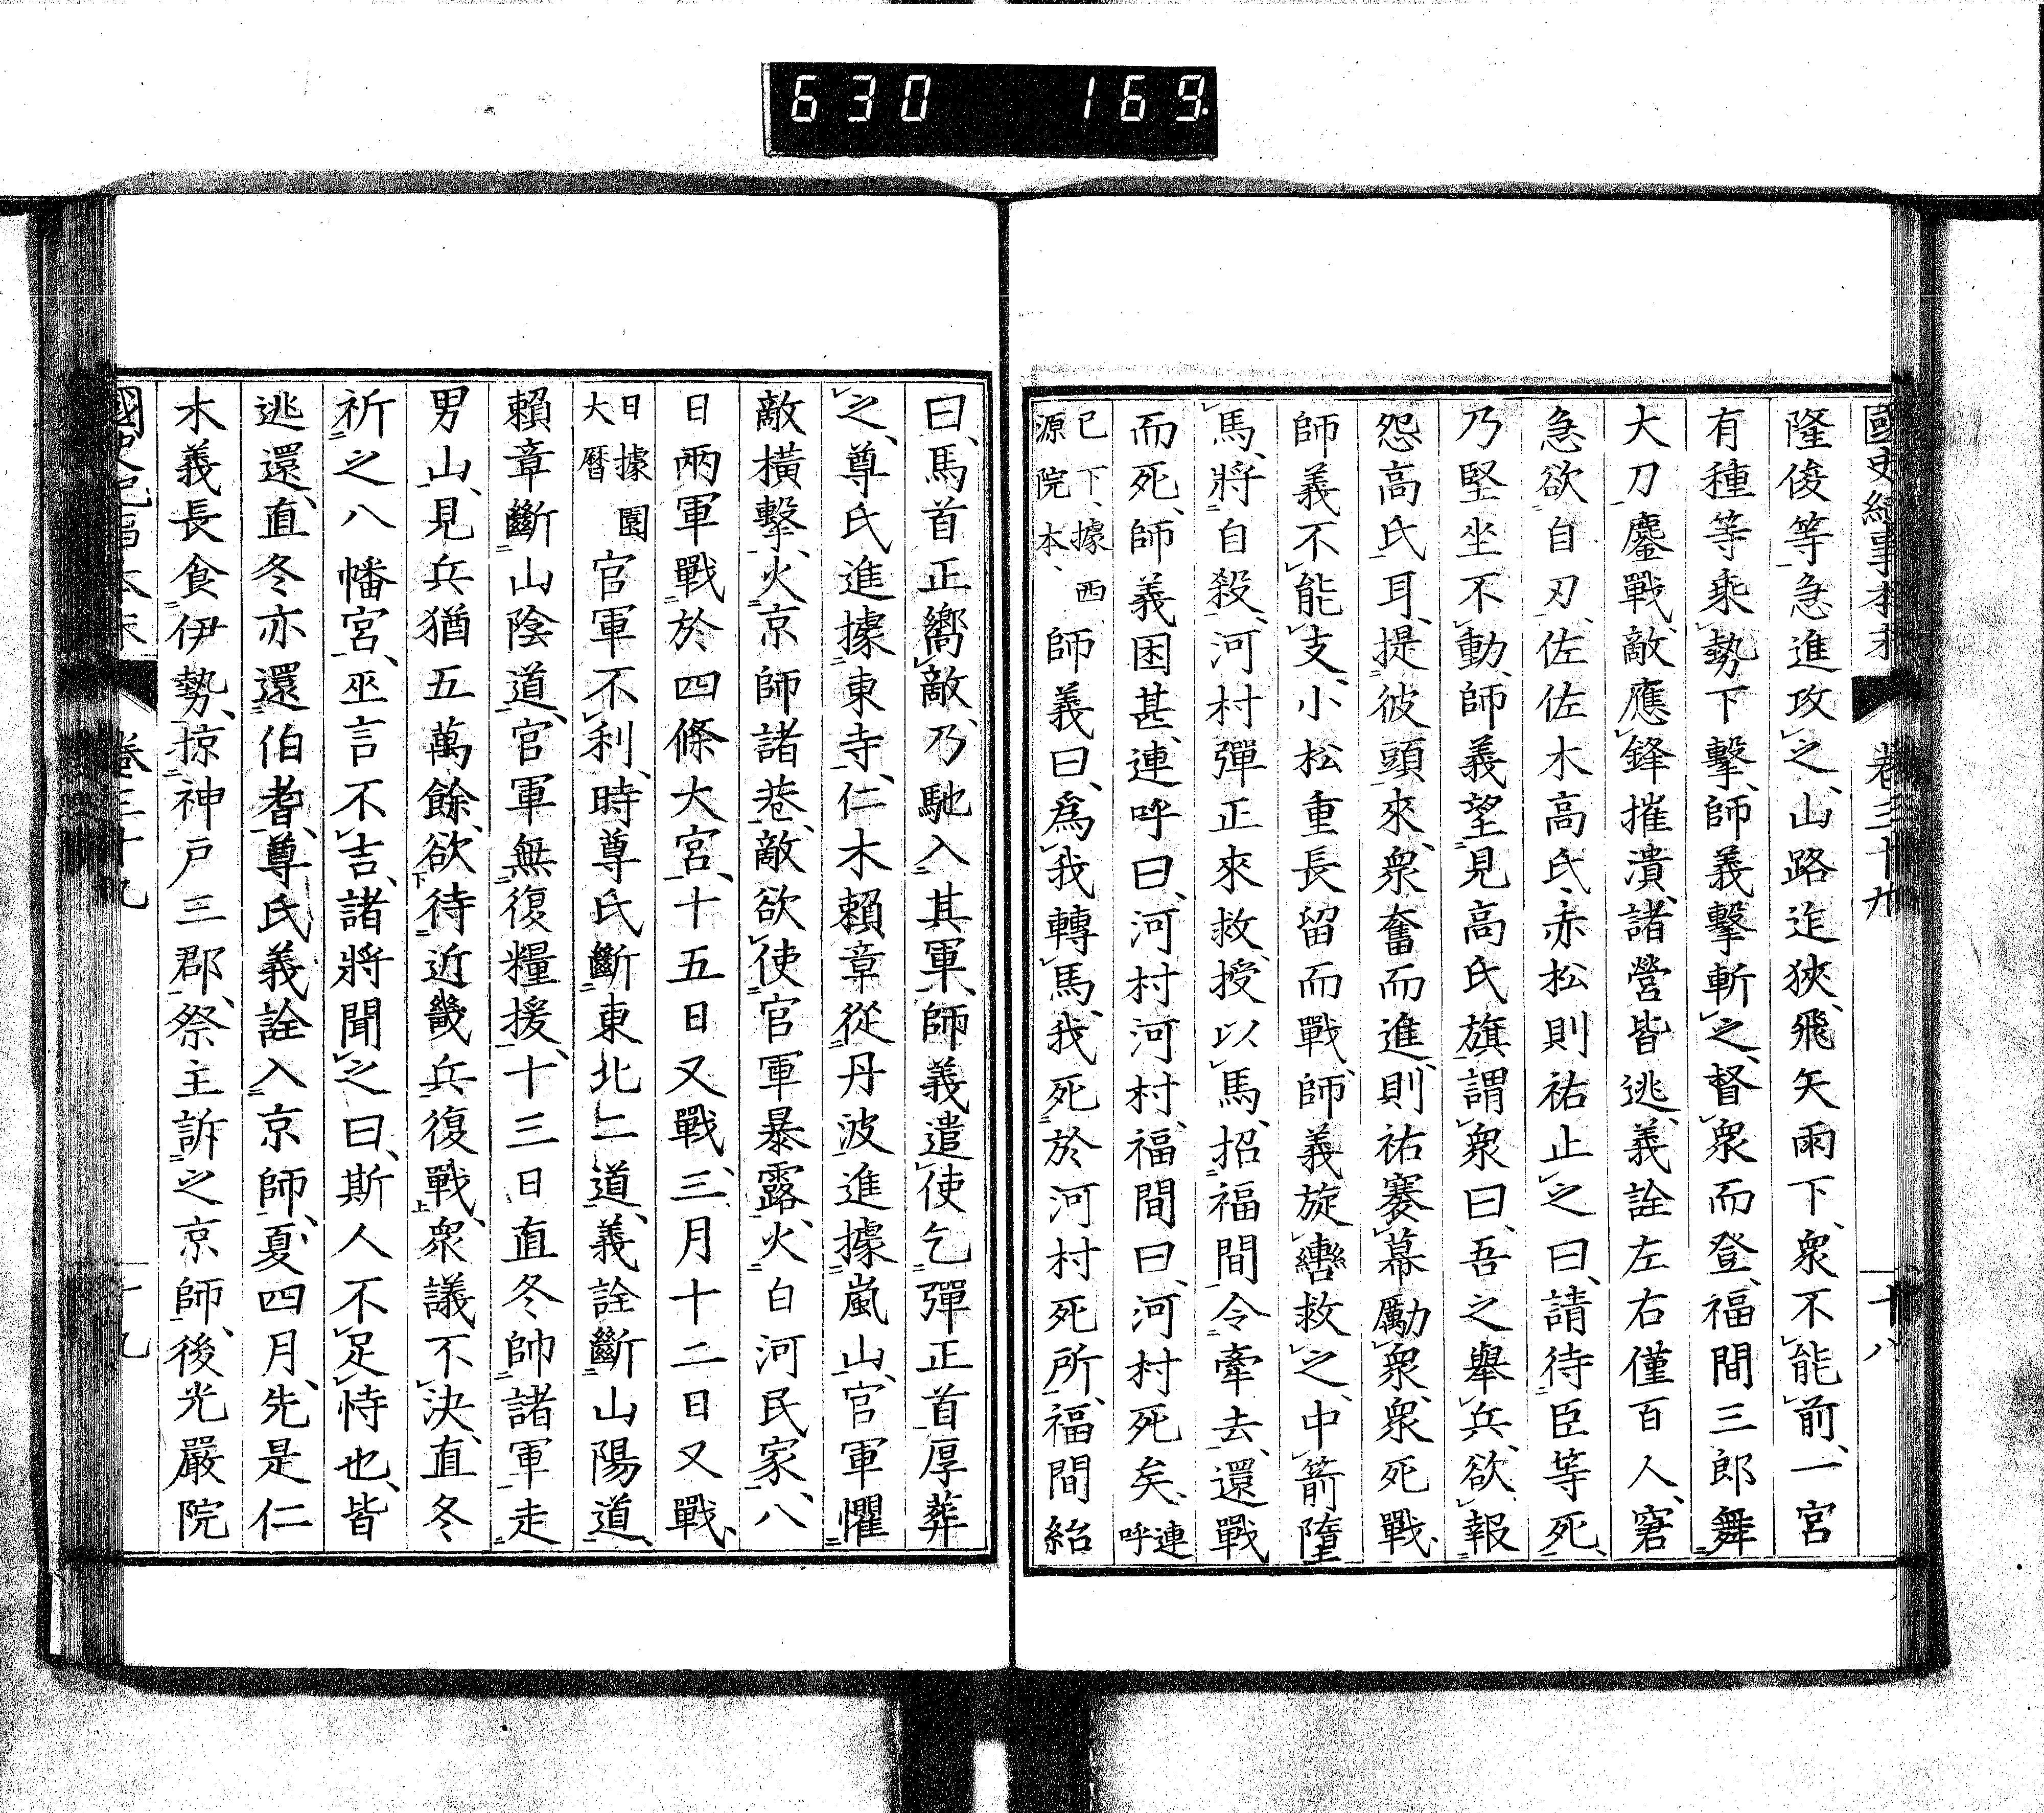 630 169.
國史紀事本末 卷三十九 十八
隆俊等急進攻之、山路迮狹、飛矢雨下、衆不能前、一宮
有種等乘勢下擊、師義擊斬之、督衆而登、福間三郎舞
大刀鏖戰、敵應鋒摧潰、諸營皆逃、義詮左右僅百人、窘
急欲自刃、佐佐木高氏、赤松則祐止之曰、請待臣等死、
乃堅坐不動、師義望見高氏旗、謂衆曰、吾之舉兵、欲報
怨高氏耳、提彼頭來、衆奮而進、則祐褰幕勵衆、衆死戰、
師義不能支、小松重長留而戰、師義旋轡救之、中箭墮
馬、將自殺、河村彈正來救、授以馬、招福間令牽去、還戰
而死、師義困甚、連呼曰、河村河村、福間曰、河村死矣、連呼
已下、據西源院本、師義曰、爲我轉馬、我死於河村死所、福間紿
曰、馬首正嚮敵、乃馳入其軍、師義遣使乞彈正首厚葬
之、尊氏進據東寺、仁木賴章從丹波進據嵐山、官軍懼
敵橫擊、火京師諸巷、敵欲使官軍暴露、火白河民家、八
日兩軍戰於四條大宮、十五日又戰、三月十二日又戰、
日據園大曆官軍不利、時尊氏斷東北二道、義詮斷山陽道、
賴章斷山陰道、官軍無復糧援、十三日直冬帥諸軍走
男山、見兵猶五萬餘、欲待近畿兵復戰、衆議不決、直冬
祈之八幡宮、巫言不吉、諸將聞之曰、斯人不足恃也、皆
逃還、直冬亦還伯耆、尊氏義詮入京師、夏四月、先是仁
木義長食伊勢、掠神戶三郡、祭主訴之京師、後光嚴院
國史紀事本末 卷三十九 十九